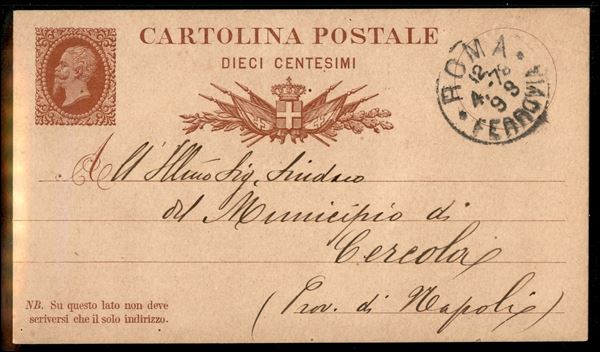 CARTOLINA POSTALE
DIECI CENTESIMI
ROMA
12
4-78
9 S
FERROVIA
All'Illmo Sig. Sindaco
del Municipio di
Cercola
(Prov. di Napoli)
NB. Su questo lato non deve
scriversi che il solo indirizzo.